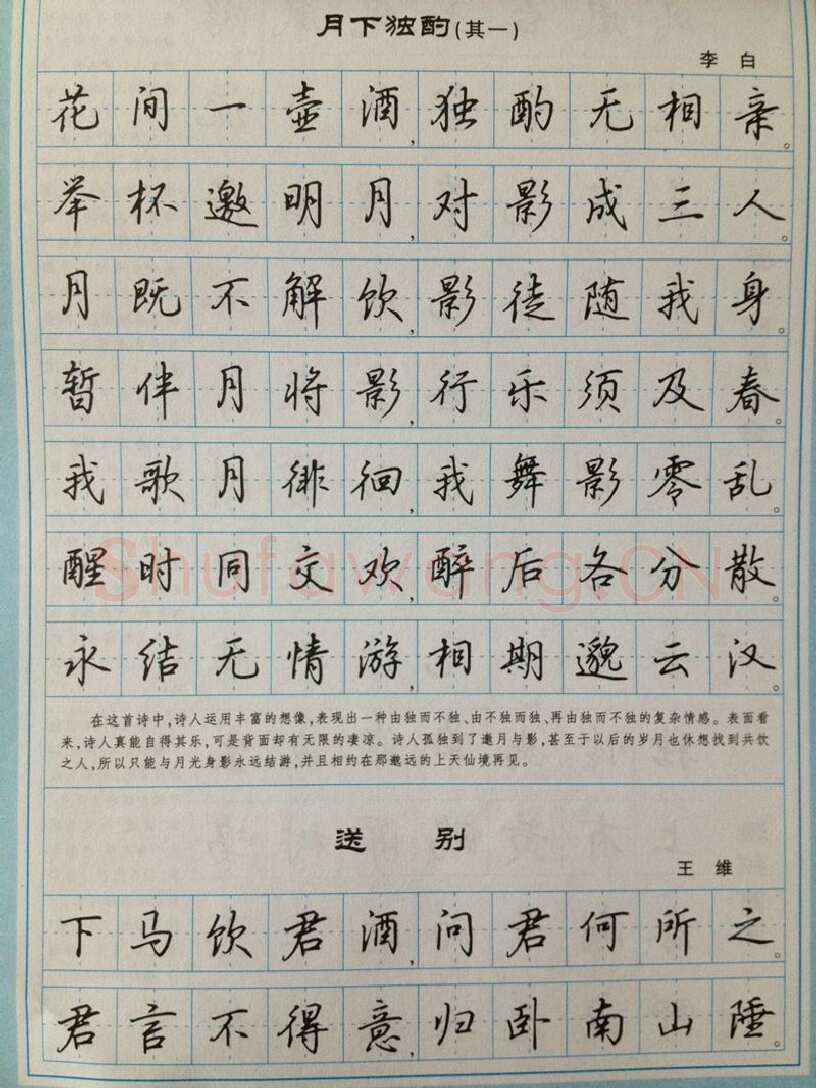 月下独酌(其一)
李 白
花间一壶酒,独酌无相亲。
举杯邀明月,对影成三人。
月既不解饮,影徒随我身。
暂伴月将影,行乐须及春。
我歌月徘徊,我舞影零乱。
醒时同交欢,醉后各分散。
Shufawang.CN
永结无情游,相期邈云汉。
在这首诗中,诗人运用丰富的想像,表现出一种由独而不独、由不独而独、再由独而不独的复杂情感。表面看
来,诗人真能自得其乐,可是背面却有无限的凄凉。诗人孤独到了邀月与影,甚至于以后的岁月也休想找到共饮
之人,所以只能与月光身影永远结游,并且相约在那邈远的上天仙境再见。
送 别
王 维
下马饮君酒,问君何所之。
君言不得意,归卧南山陲。